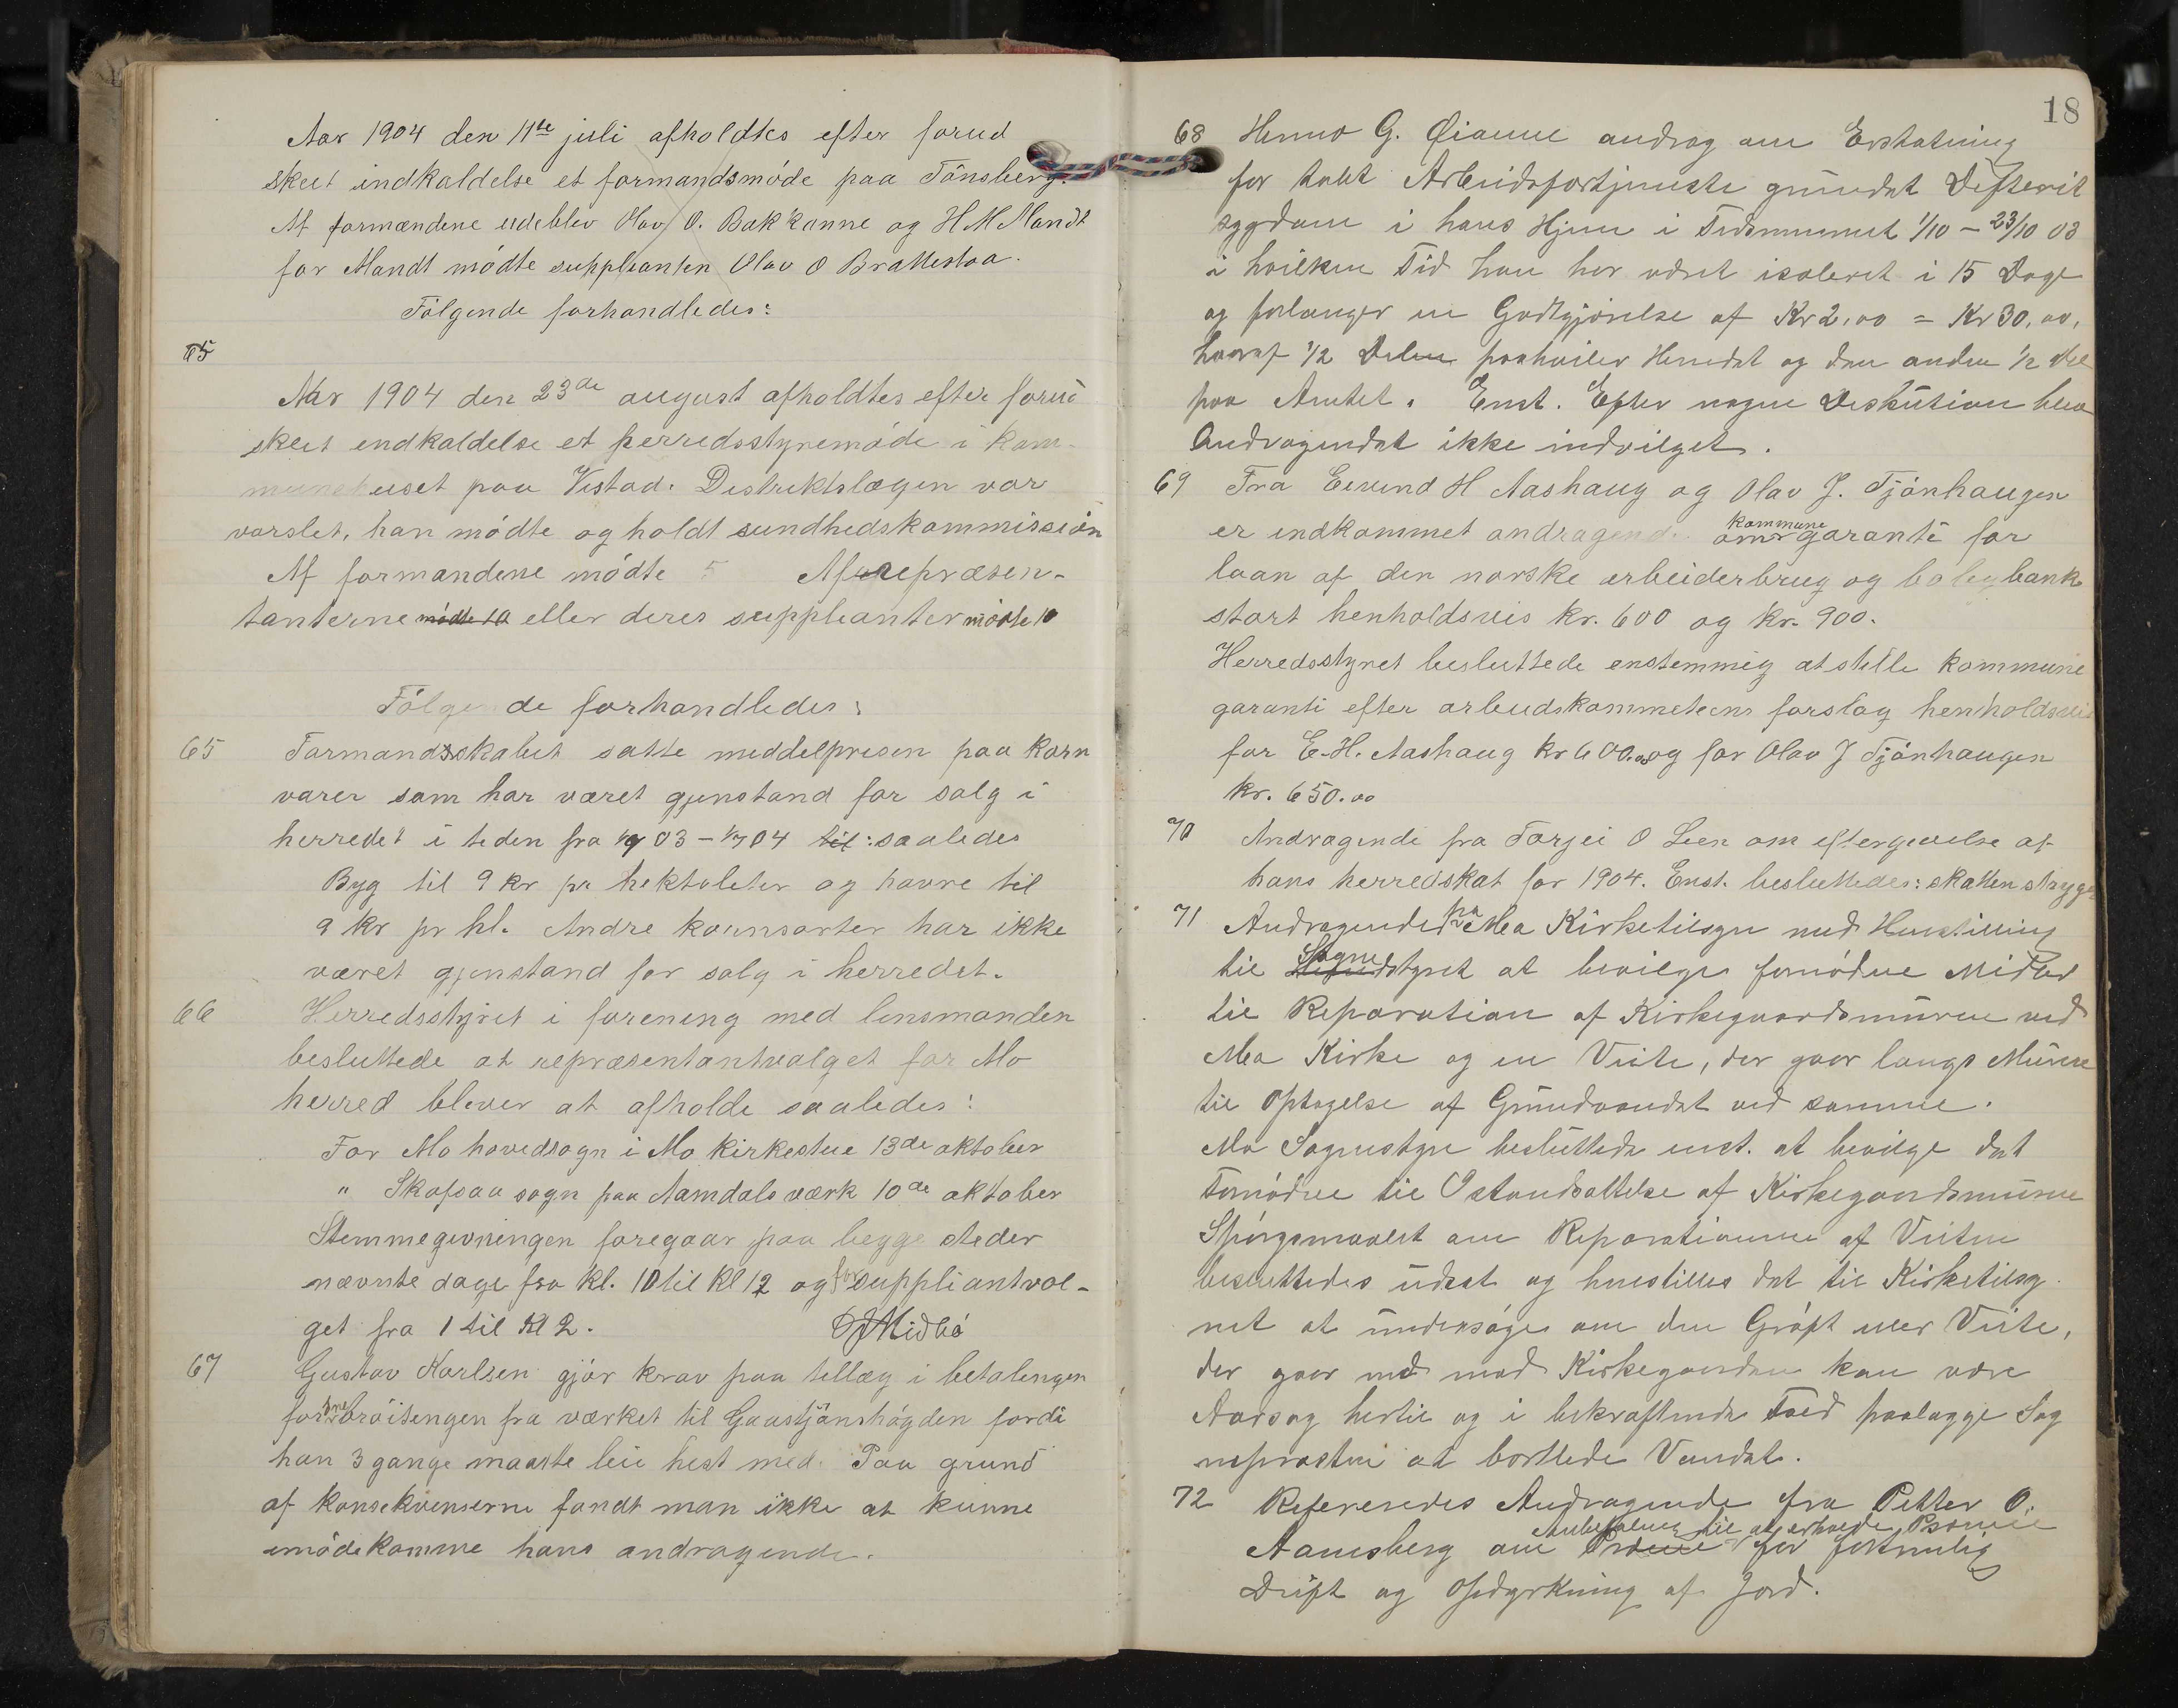 Aar 1904 den 11te juli afholdtes efter forud
skeet indkaldelse et formandsmöde paa Tönsberg.
Af formændene udeblev Olav O. Bakkanne og H M Mandt
for Mandt mödte suppleanten Olav O Brattestaa.
Fölgende forhandledes:
65
Aar 1904 den 23de august afholdtes efter forud
skeet indkaldelse et herredsstyremöde i kom-
munehuset paa Vistad. Distriktslægen var
varslet, han mödte og holdt sundhedskommission
Af formændene mödte 5 Af repræsen-
tanterne mödte 10 eller deres suppleanter mödte 10
Fölgende forhandledes:
65 Formandsskabet satte middelprisen paa korn
varer som har været gjenstand for salg i
herredet i tiden fra 03 - 04 til: saaledes
Byg til 9 kr pr hektoliter og havre til
9 kr pr hl. Andre kornsorter har ikke
været gjenstand for salg i herredet.
66 Herredsstyret i forening med lensmanden
besluttede at repræsentantvalget for Mo
herred bliver at afholde saaledes:
For Mo hovedsogn i Mo kirkestue 13de oktober
" Skafsaa sogn paa Aamdals værk 10de oktober
Stemmegivningen foregaar paa begge steder
nævnte dage fra kl. 10 til kl 12 og for suppliantval-
get fra 1 til Kl 2. Midbö
67 Gustav Karlsen gjör krav paa tillæg i betalingen
for snebröitingen fra værket til Gaastjönshögden fordi
han 3 gange maatte leie hest med. Paa grund
af konsekvenserne fandt man ikke at kunne
imödekomme hans andragende.
18
68 G. Öianne andrag om Erstatning
for tabt Arbeidsfortjeneste grundet Difterit
sygdom i hans Hjem i Tidsrummet 1/10 - 23/10 03
i hvilken Tid han har været isoleret i 15 Dage
og forlanger en Godtgjörelse af Kr 2,00 = Kr 30,00,
hvoraf 1/2 Delen paahviler Herredet og den anden 1/2 del
paa Amtet. Enst. Efter nogen Diskution blev
Andragendet ikke indvilget.
69 Fra Eivind H Aashaug og Olav J. Tjönhaugen
er indkommet andragende om kommune garanti for
laan af den norske arbeiderbrug og boligbank
stort henholdsvis kr. 600 og kr. 900.
Herredsstyret besluttede enstemmig at stille kommune
garanti efter arbeidskommiteens forslag henholdsvis
for E. H. Aashaug kr 600.00 og for Olav J Tjönhaugen
kr. 650.00
70 Andragende fra Torjei O Lien om eftergivelse af
hans herredskat for 1904. Enst. besluttedes: skatten stryges
71 Andragende fra Mo Kirketilsyn med Henstilling
til Sognestyret at bevilge fornödne Midler
til Reparation af Kirkegaardsmuren ved
Mo Kirke og en Veite, der gaar langs Muren
til Optagelse af Grundvandet ved samme.
Mo Sognestyre besluttede enst. at bevilge det
Fornödne til Istandsættelse af Kirkegaardsmuren
Spörgsmaalet om Reparationen af Veiten
besluttedes udsat og henstilles det til Kirketilsy-
net at undersöge om den Gröft eller Veite,
der gaar ned mod Kirkegaarden kan være
Aarsag hertil og i bekræftende Fald paalægge Sog
nepresten at bortlede Vandet.
72 Refereredes Andragende fra Petter O.
Aamsberg om Anbefaling til at erholde Præmie for fortrinlig
Drift og Opdyrkning af Jord.